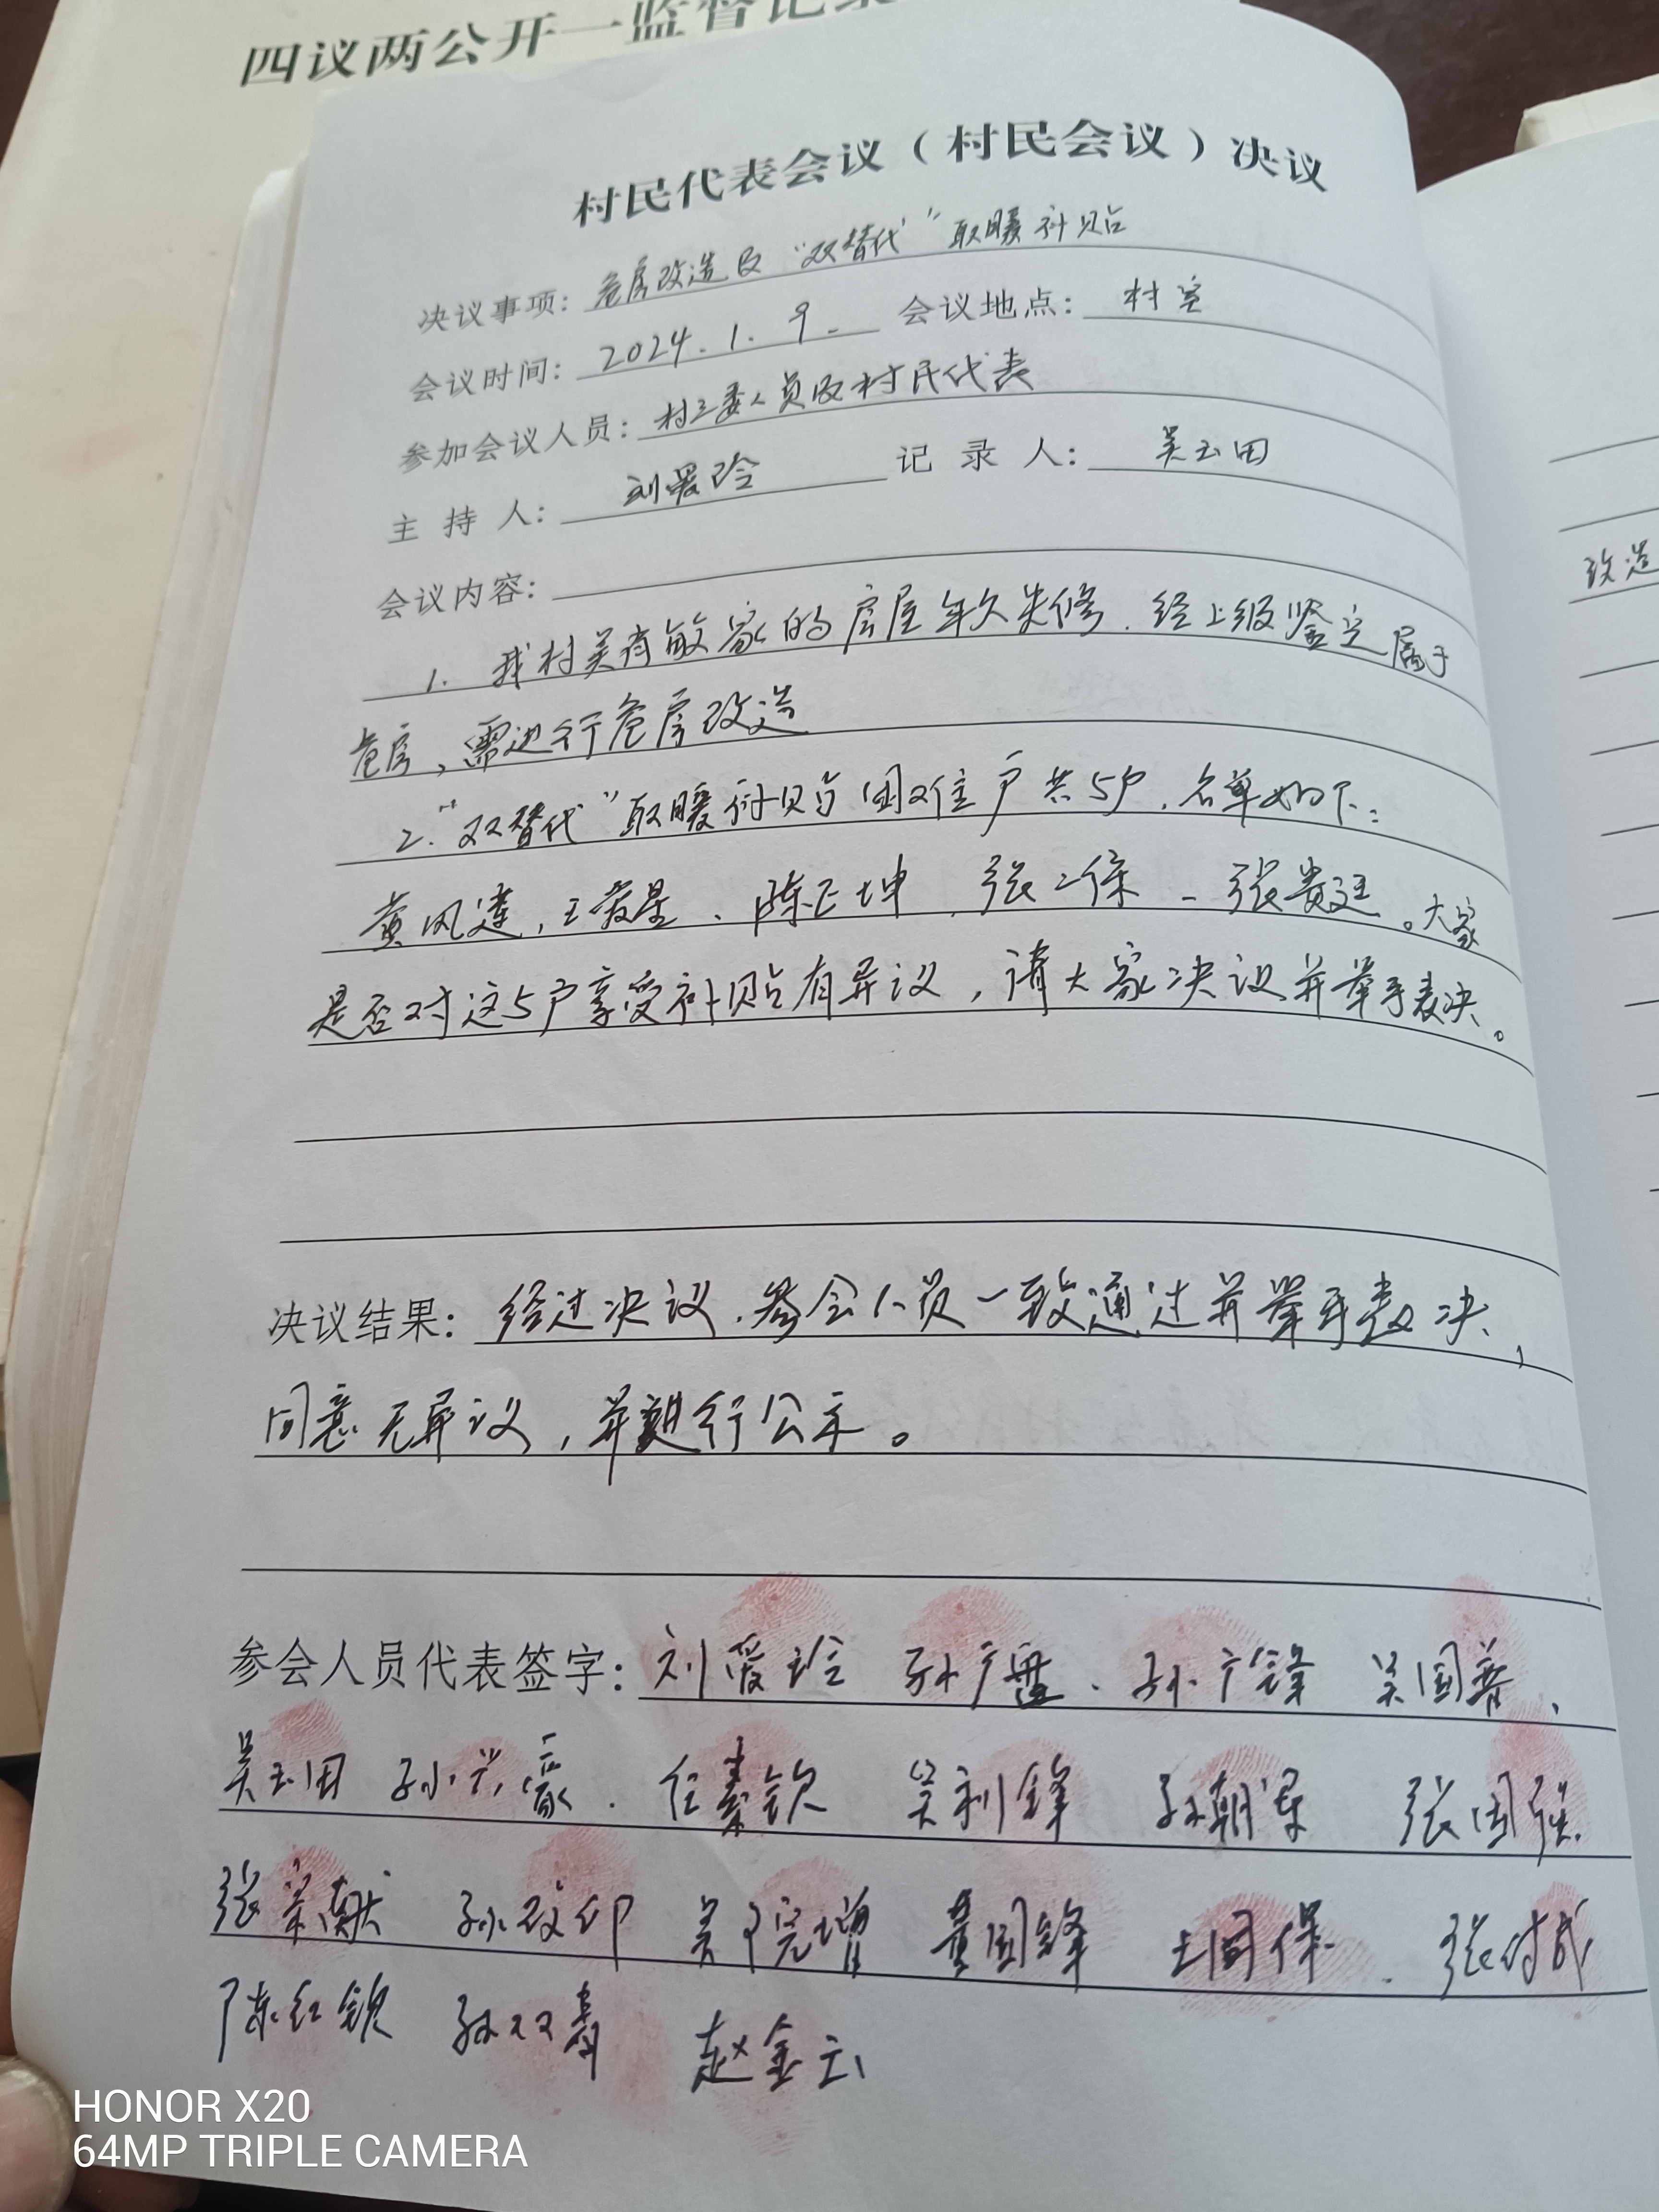 四议两公开一监督记录
村民代表会议（村民会议）决议
决议事项：危房改造及“双替代”取暖补贴
会议时间：2024.1.9. 会议地点：村室
参加会议人员：村三委人员及村民代表
主持人：刘爱玲 记录人：吴玉田
会议内容：
1. 我村吴有敏家的房屋年久失修.经上级鉴定属于
危房，需进行危房改造
2.“双替代”取暖补贴困难住户共5户.名单如下：
黄风莲，王爱星、陈正坤、张二保、张贵廷。大家
是否对这5户享受补贴有异议，请大家决议并举手表决。
决议结果：经过决议.参会人员一致通过并举手表决，
同意无异议，并进行公示。
参会人员代表签字：刘爱玲 孙广 、孙广锋 吴国
吴玉田 孙 豪. 任素钦 吴利锋 孙朝 张国强.
张 献 孙 印 吴 增 黄国锋 王国保 . 张付成
陈红钦 孙双喜 赵金云
改造
HONOR X20
64MP TRIPLE CAMERA